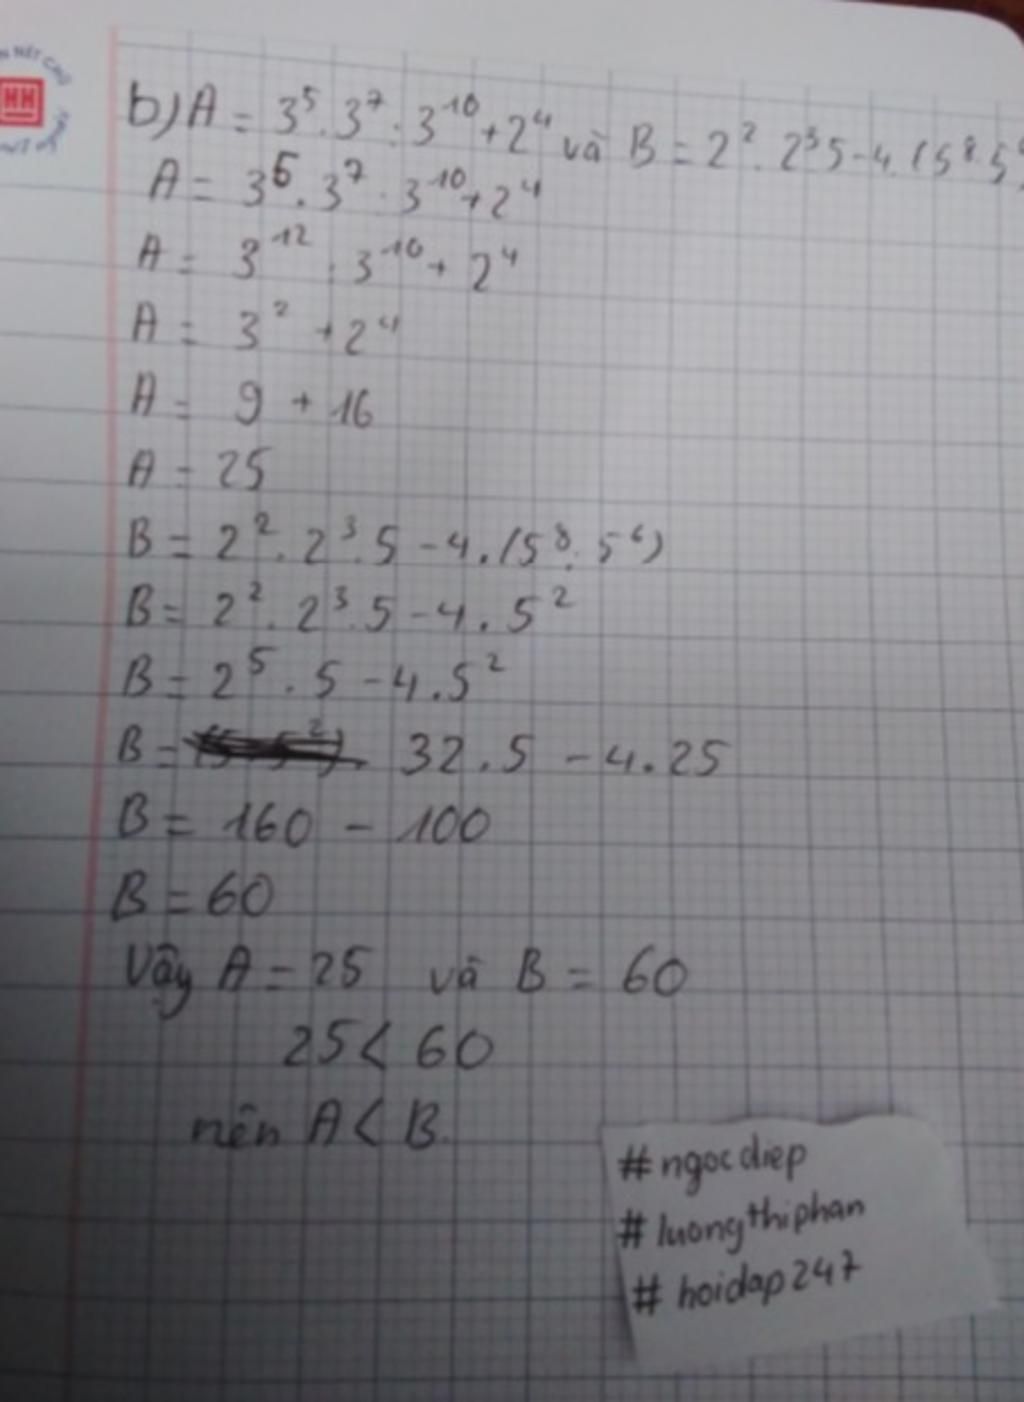 b) A = 3⁵ . 3⁷ : 3¹⁰ + 2⁴ và B = 2² . 2³ 5 - 4. (5⁸ . 5⁶
A = 3⁵ . 3⁷ : 3¹⁰ + 2⁴
A = 3¹² : 3¹⁰ + 2⁴
A = 3² + 2⁴
A = 9 + 16
A = 25
B = 2² . 2³ . 5 - 4 . (5⁸ : 5⁶)
B = 2² . 2³ . 5 - 4 . 5²
B = 2⁵ . 5 - 4 . 5²
B = 32 . 5 - 4 . 25
B = 160 - 100
B = 60
Vậy A = 25 và B = 60
25 < 60
nên A < B.
#ngocdiep
#luongthiphan
#hoidap247